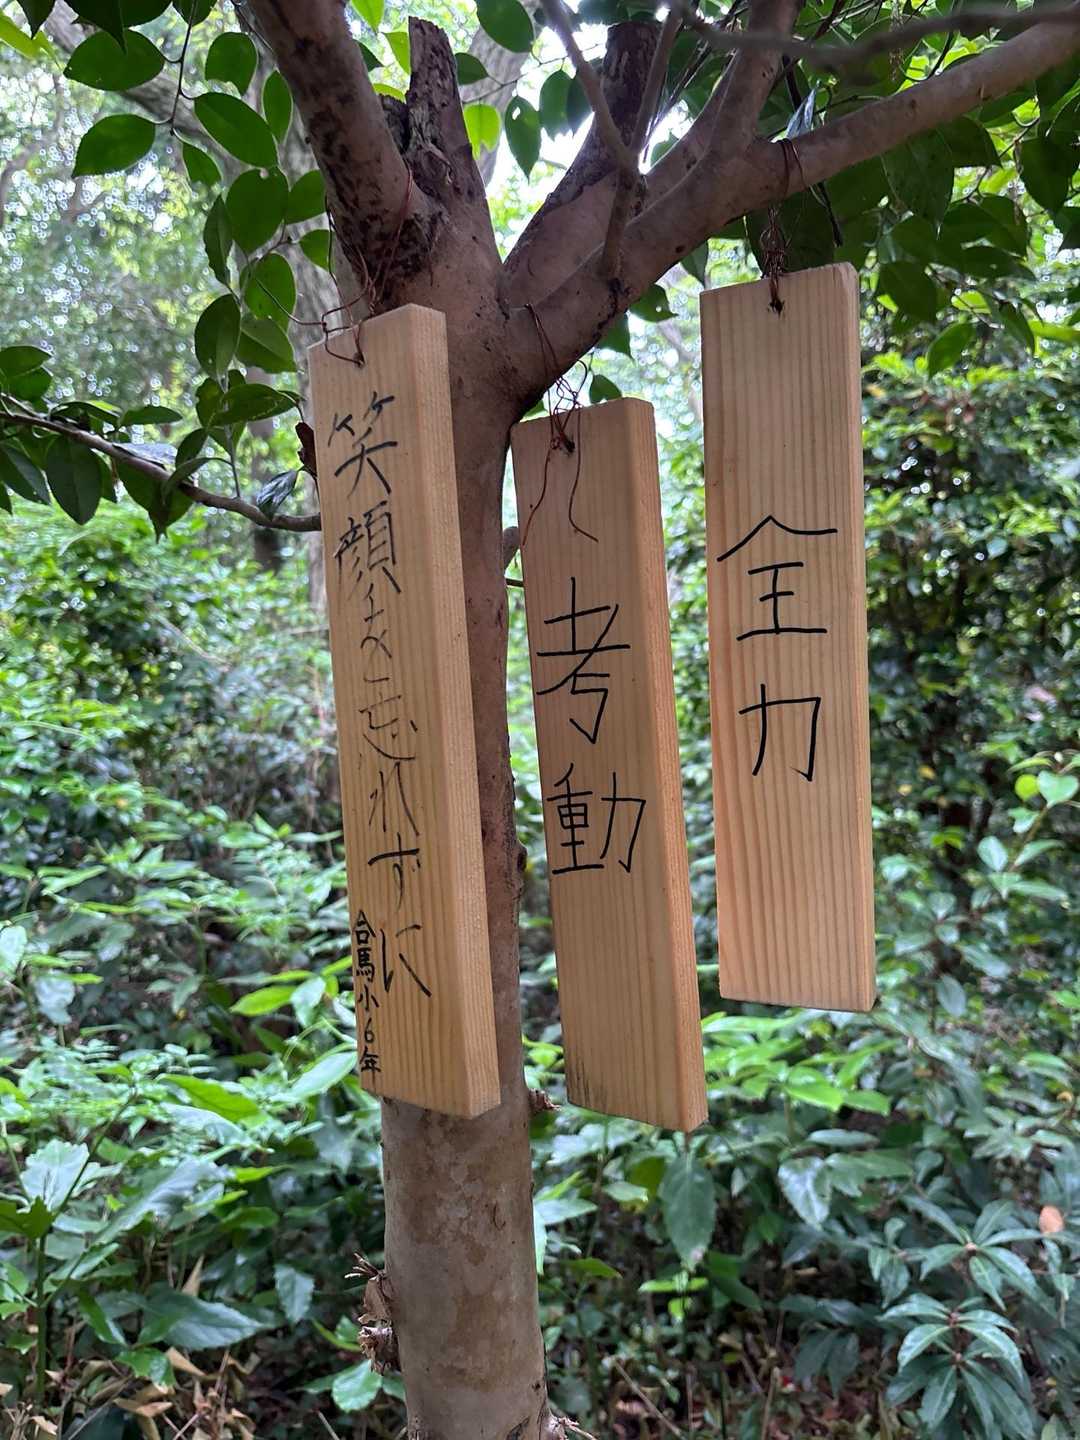 笑顔を忘れずに
合馬小6年
考動
全力